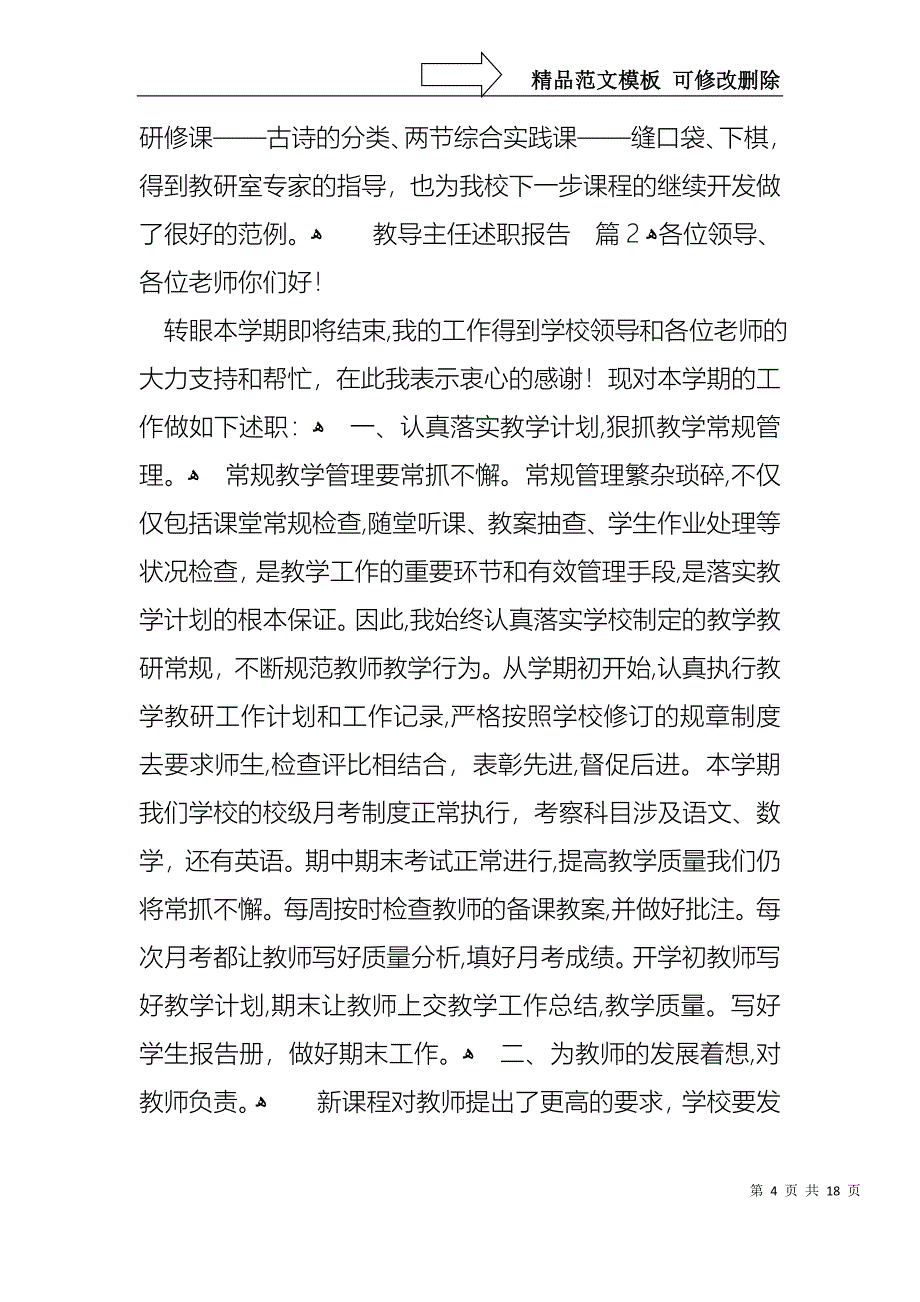 精品范文模板 可修改删除
研修课——古诗的分类、两节综合实践课——缝口袋、下棋，
得到教研室专家的指导，也为我校下一步课程的继续开发做
了很好的范例。ﻫ 教导主任述职报告 篇２ﻫ各位领导、
各位老师你们好！
转眼本学期即将结束,我的工作得到学校领导和各位老师的
大力支持和帮忙，在此我表示衷心的感谢！现对本学期的工
作做如下述职：ﻫ 一、认真落实教学计划,狠抓教学常规管
理。ﻫ 常规教学管理要常抓不懈。常规管理繁杂琐碎,不仅
仅包括课堂常规检查,随堂听课、教案抽查、学生作业处理等
状况检查，是教学工作的重要环节和有效管理手段,是落实教
学计划的根本保证。因此,我始终认真落实学校制定的教学教
研常规，不断规范教师教学行为。从学期初开始,认真执行教
学教研工作计划和工作记录,严格按照学校修订的规章制度
去要求师生,检查评比相结合，表彰先进,督促后进。本学期
我们学校的校级月考制度正常执行，考察科目涉及语文、数
学，还有英语。期中期末考试正常进行,提高教学质量我们仍
将常抓不懈。每周按时检查教师的备课教案,并做好批注。每
次月考都让教师写好质量分析,填好月考成绩。开学初教师写
好教学计划,期末让教师上交教学工作总结,教学质量。写好
学生报告册，做好期末工作。ﻫ 二、为教师的发展着想,对
教师负责。ﻫ 新课程对教师提出了更高的要求，学校要发
第 4 页 共 18 页